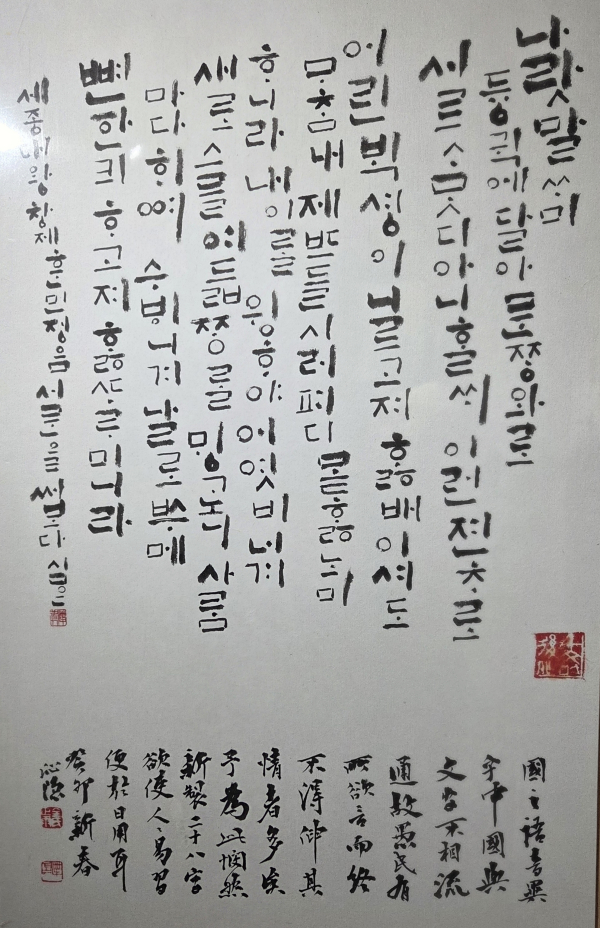 나랏말ᄊᆞ미
듕귁에달아 문ᄍᆞᆼ와로
서르ᄉᆞᄆᆞᆺ디아니ᄒᆞᆯᄊᆡ 이런젼ᄎᆞ로
어린ᄇᆡᆨ셩이니르고져 ᄒᆞᇙ배이셔도
ᄆᆞᄎᆞᆷ내제ᄠᅳ들시러펴디 몯ᄒᆞᇙ노미
하니라 내이ᄅᆞᆯ 윙ᄒᆞ야 어엿비너겨
새로스믈여듧ᄍᆞᆼᄅᆞᆯ ᄆᆡᇰᄀᆞ노니 사ᄅᆞᆷ
마다ᄒᆡᅇᅧ 수ᄫᅵ니겨 날로ᄡᅮ메
뼌한킈ᄒᆞ고져 ᄒᆞᇙᄯᆞᄅᆞ미니라
세종대왕창제훈민정음서문을 써보다 심은
國之語音異
乎中國與
文字不相流
通故愚民有
所欲言而終
不得伸其
情者多矣
予為此憫然
新製二十八字
欲使人〻易習
便於日用耳
癸卯新春
沁隱